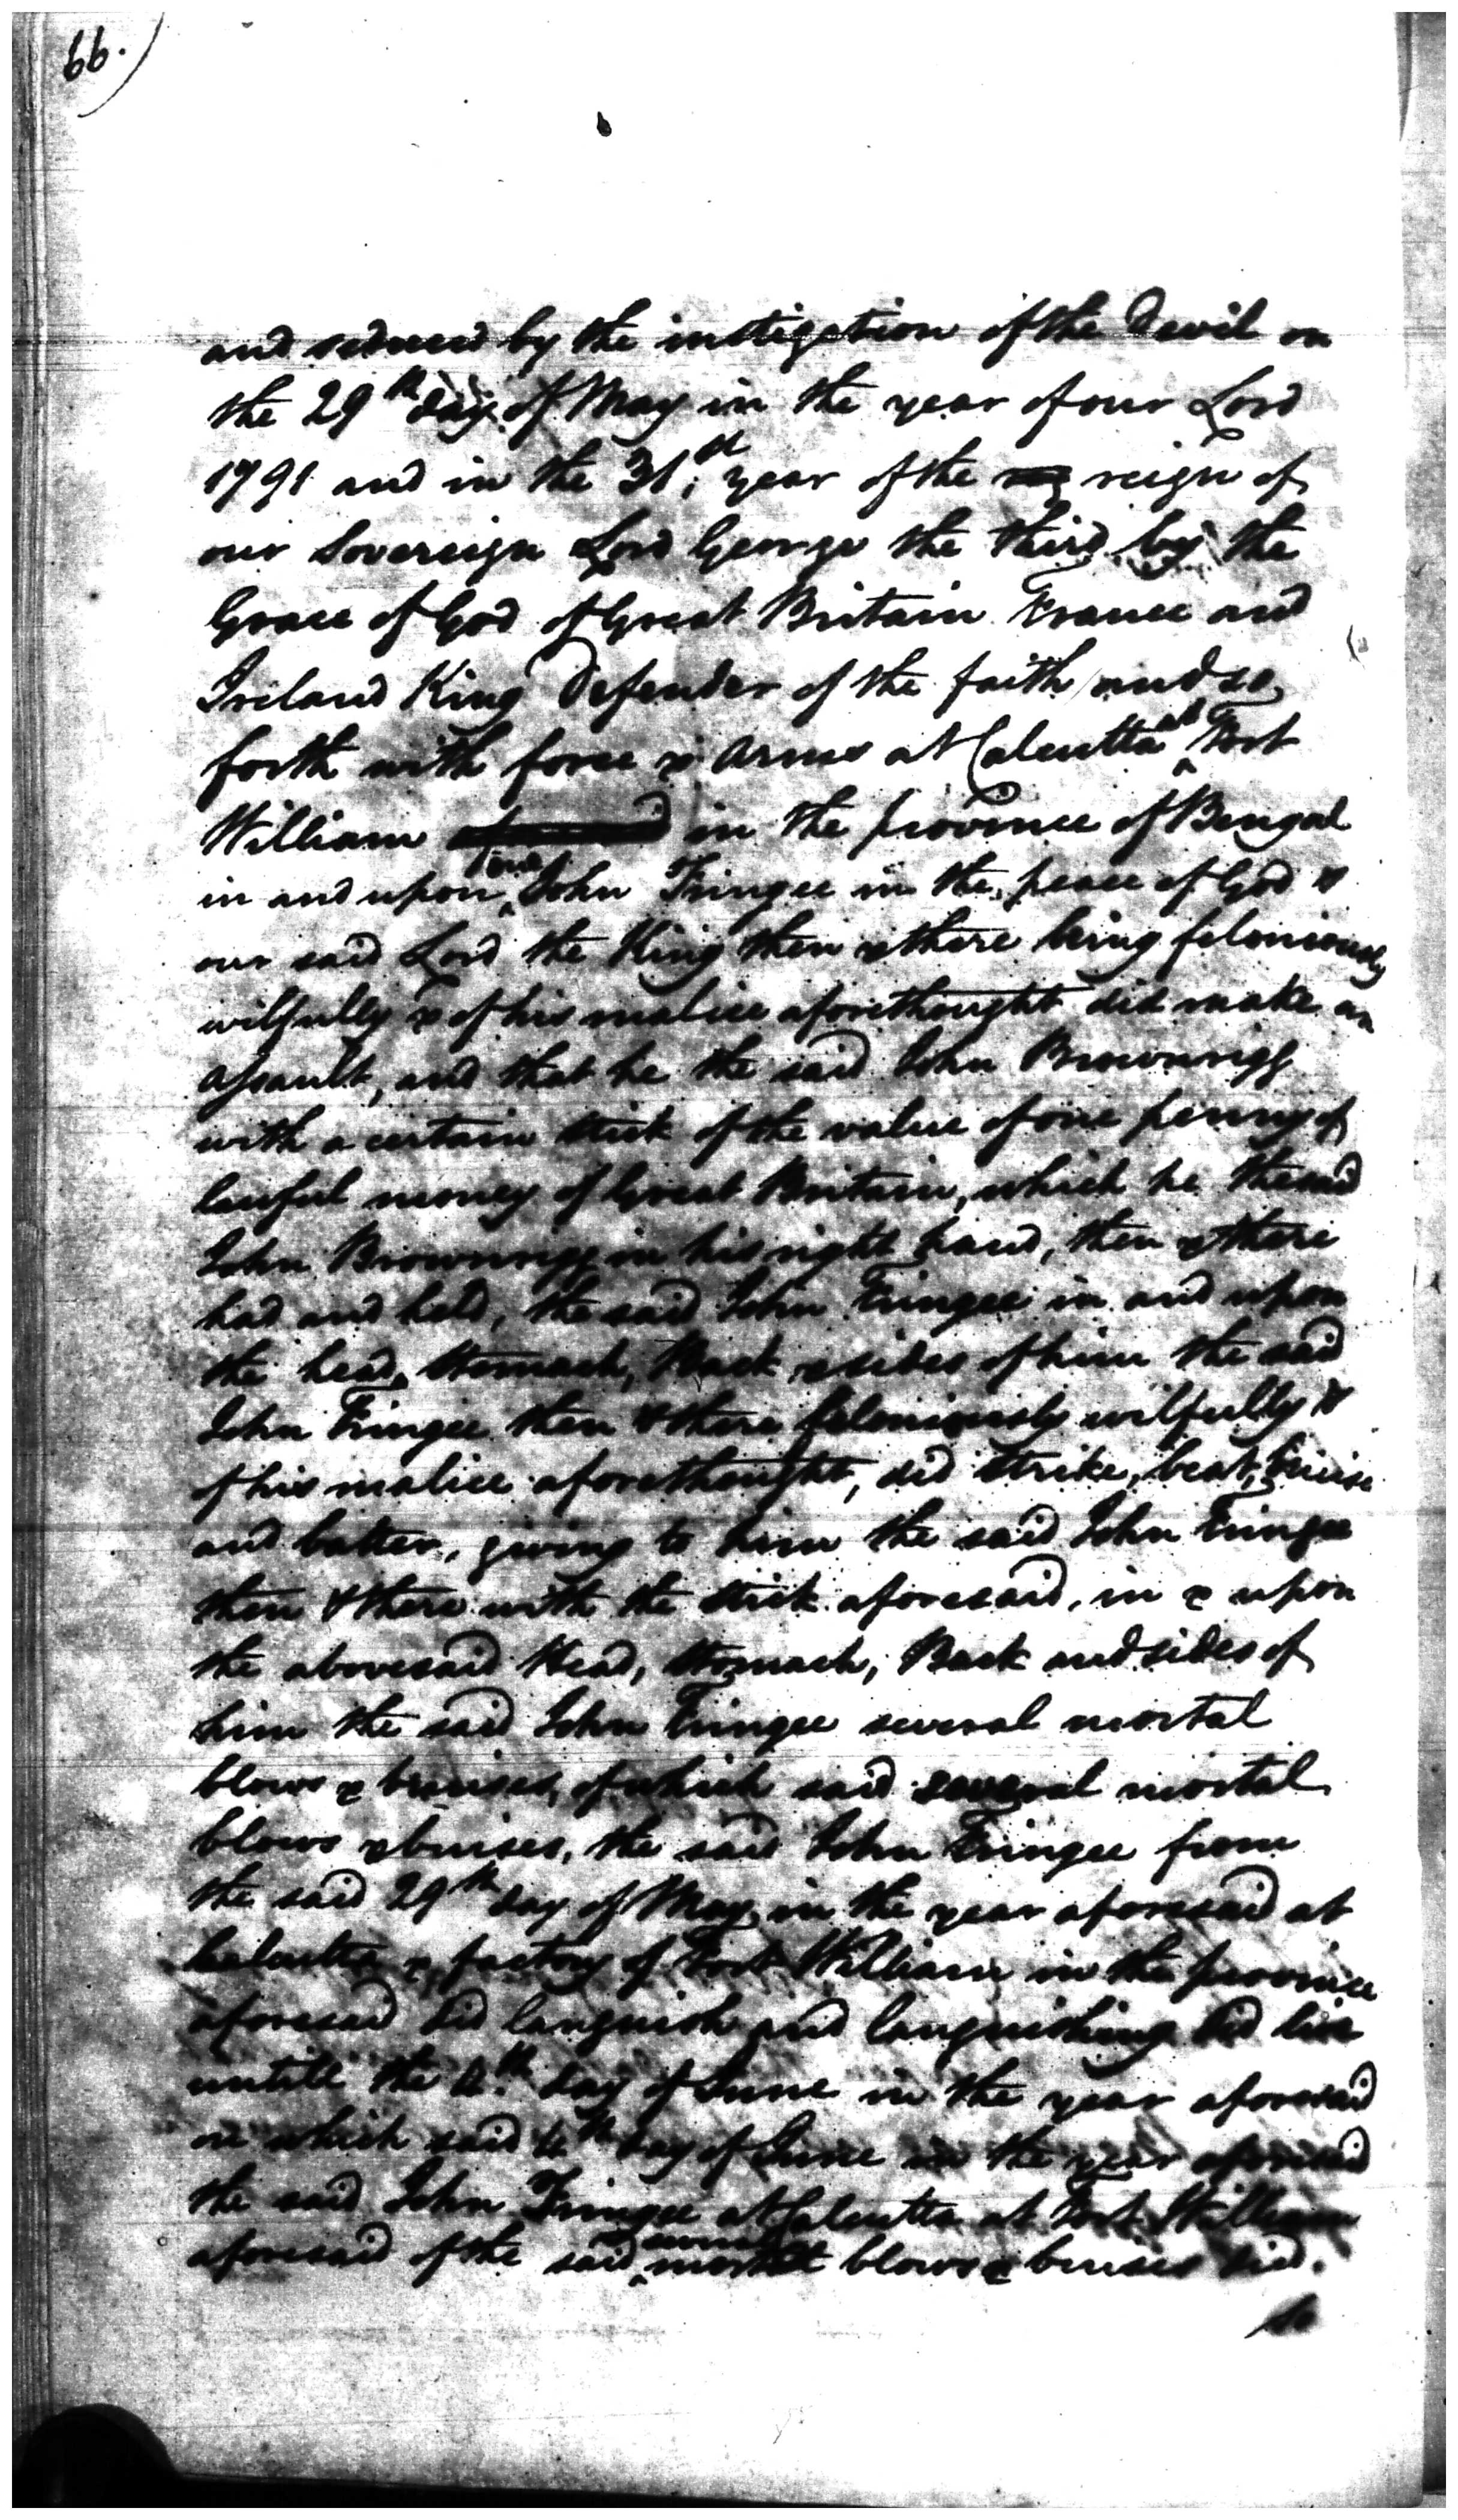 66.)
and seduced by the instigation of the Devil on
the 29th day of May in the year of our Lord
1791 and in the 31st year of the reign of
our Sovereign Lord George the third by the
Grace of God of Great Britain France and
Ireland King Defender of the faith and so
forth with force & Arms at Calcutta at Fort
William in the province of Bengal
in and upon one John Fringee in the peace of God &
our said Lord the King then & there being feloniously
wilfully & of his malice aforethought did make an
assault, and that he the said John Brownrigg
with a certain stick of the value of one penny of
lawful money of Great Britain, which he the said
John Brownrigg in his right hand, then & there
had and held, the said John Fringee in and upon
the head, Stomach, Back & sides of him the said
John Fringee then & there feloniously wilfully &
of his malice aforethought, did strike, beat, bruise
and batter, giving to him the said John Fringee
then & there with the stick aforesaid, in & upon
the abovesaid Head, Stomach, Back and sides of
him the said John Fringee several mortal
blows & bruises, of which said several mortal
blows & bruises, the said John Fringee from
the said 29th day of May in the year aforesaid at
Calcutta & factory of Fort William in the province
aforesaid did languish and languishing did live
untill the 4th day of June in the year aforesaid
on which said 4th day of June in the year aforesaid
the said John Fringee at Calcutta at Fort William
aforesaid of the said several mortal blows & bruises died.
So